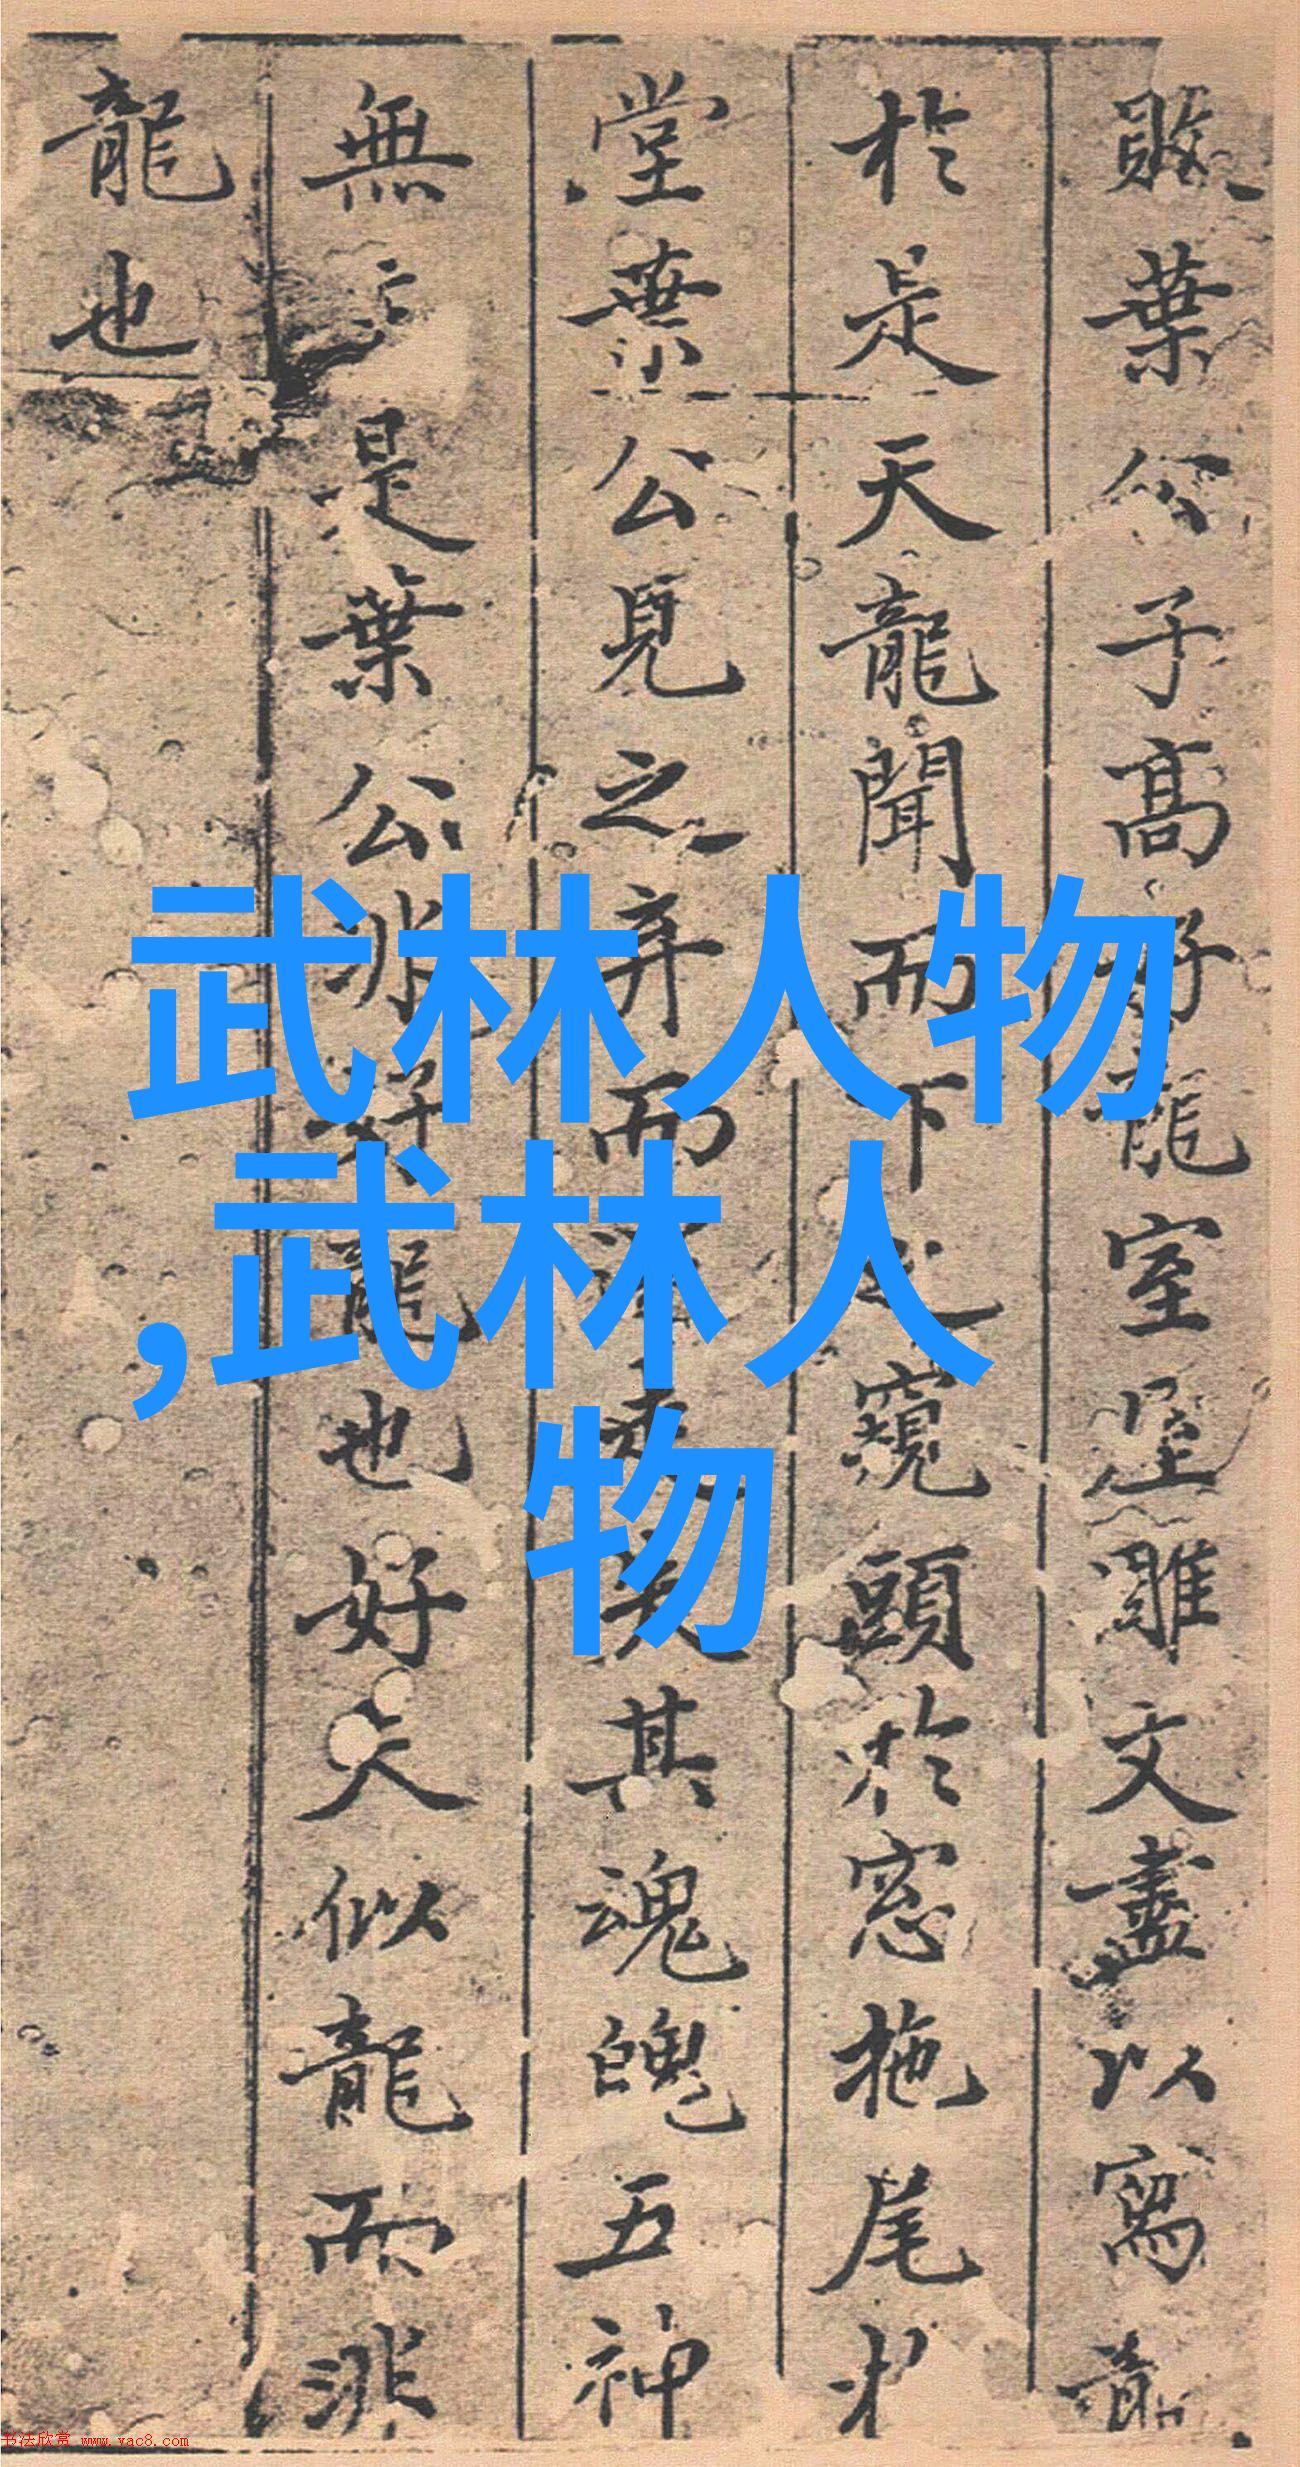 葉公子高好龍室雕文盡以寫龍
於是天龍聞而下之窺頭於窓拖尾於
堂葉公見之弃而還走失其魂魄五神
無主是葉公非好龍也好夫似龍而非
龍也
武林人物
,武林人
物
书法欣赏 www.yac8.com